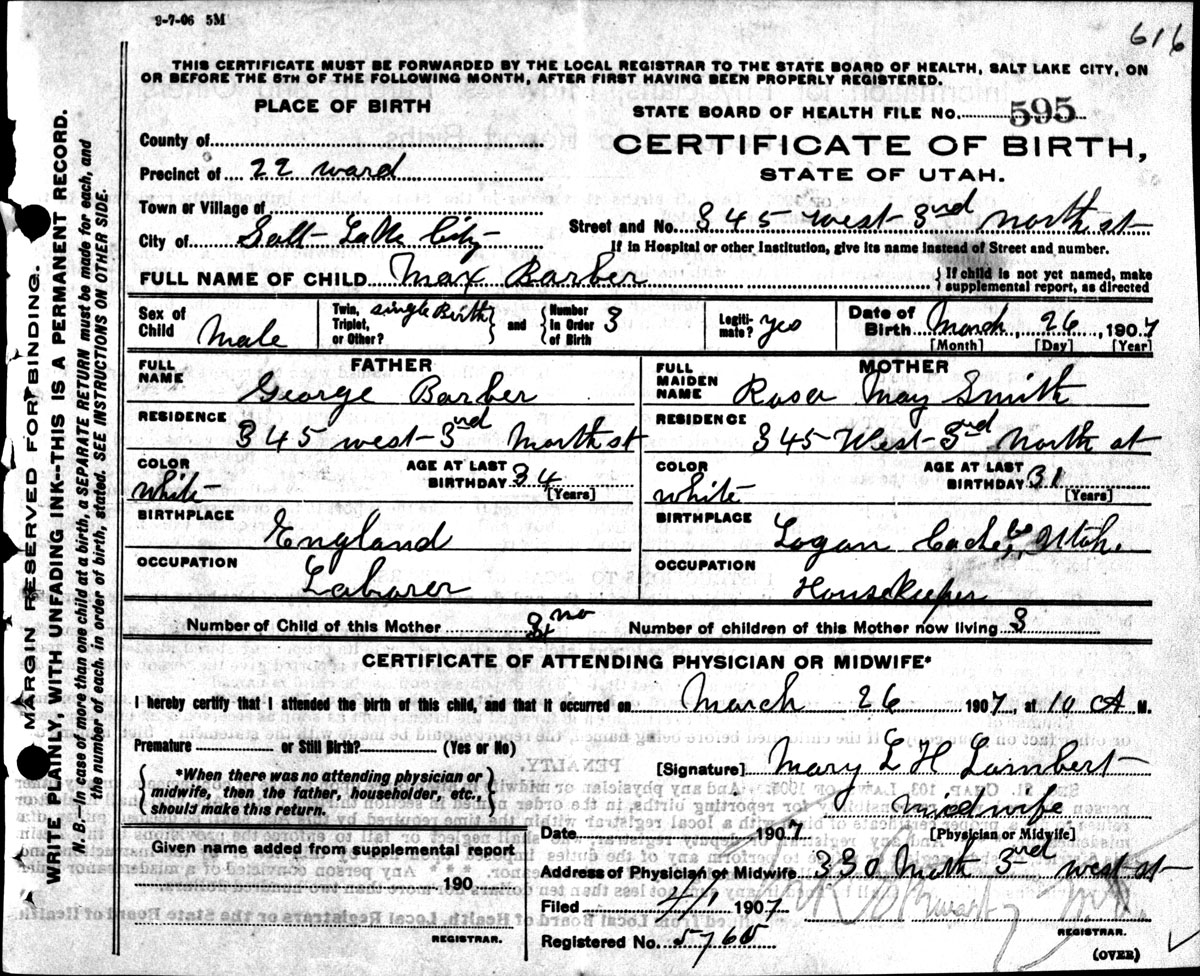 9-7-06 5M
616
THIS CERTIFICATE MUST BE FORWARDED BY THE LOCAL REGISTRAR TO THE STATE BOARD OF HEALTH, SALT LAKE CITY, ON
OR BEFORE THE 5TH OF THE FOLLOWING MONTH, AFTER FIRST HAVING BEEN PROPERLY REGISTERED.
PLACE OF BIRTH
STATE BOARD OF HEALTH FILE NO. 595
County of
CERTIFICATE OF BIRTH,
Precinct of 22 ward
STATE OF UTAH.
Town or Village of
Street and No. 345 west 3rd North st
City of Salt Lake City
If in Hospital or other Institution, give its name instead of Street and number.
FULL NAME OF CHILD Max Barber
If child is not yet named, make
supplemental report, as directed
Sex of Child Male
Twin, Triplet, or Other? single Birth
and
Number in Order of Birth 3
Legiti-mate? yes
Date of Birth March, 26, 1907
[Month] [Day] [Year]
FATHER
MOTHER
FULL NAME George Barber
FULL MAIDEN NAME Rosa May Smith
RESIDENCE 345 west 3rd North st
RESIDENCE 345 West 3rd North st
COLOR white
AGE AT LAST BIRTHDAY 34 [Years]
COLOR white
AGE AT LAST BIRTHDAY 31 [Years]
BIRTHPLACE England
BIRTHPLACE Logan Cache Co, Utah
OCCUPATION Laborer
OCCUPATION Housekeeper
Number of Child of this Mother 3 no
Number of children of this Mother now living 3
CERTIFICATE OF ATTENDING PHYSICIAN OR MIDWIFE*
I hereby certify that I attended the birth of this child, and that it occurred on March 26 1907, at 10 A M.
Premature or Still Birth? (Yes or No)
*When there was no attending physician or
midwife, then the father, householder, etc.,
should make this return.
[Signature] Mary L H Lambert
midwife
[Physician or Midwife]
Date 1907
Given name added from supplemental report
190
REGISTRAR.
Address of Physician or Midwife 330 North 3rd west st
Filed 4/1 1907
REGISTRAR.
Registered No. 5765
(OVER)
MARGIN RESERVED FOR BINDING.
WRITE PLAINLY, WITH UNFADING INK--THIS IS A PERMANENT RECORD.
N. B.--In case of more than one child at a birth, a SEPARATE RETURN must be made for each, and
the number of each, in order of birth, stated. SEE INSTRUCTIONS ON OTHER SIDE.